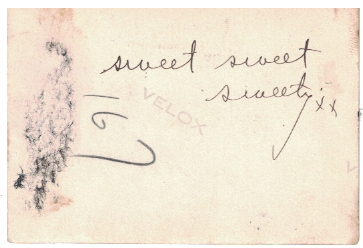 sweet sweet
sweety xx
167
VELOX